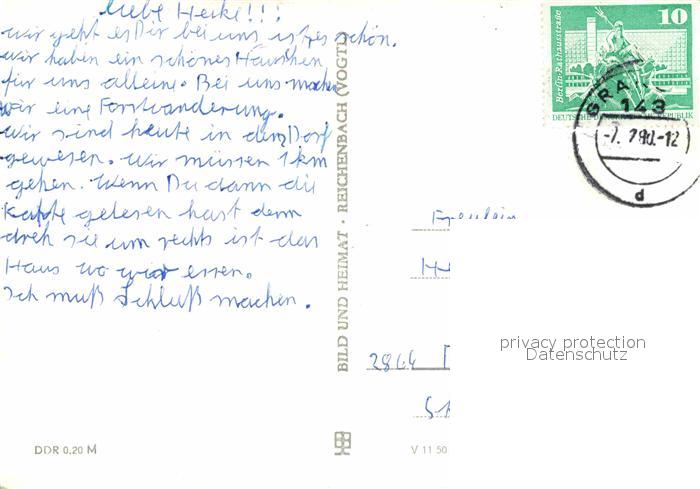 liebe Heike!!!
wir geht es Dir bei uns ist es schön.
wir haben ein schönes Häuschen
für uns alleine. Bei uns machen
wir eine Forstwanderung.
wir sind heute in dem Dorf
gewesen. Wir müssen 1 km
gehen. Wenn Du dann die
Karte gelesen hast dann
dreh sie um rechts ist das
Haus wo wir essen.
Ich muß Schluß machen.
DDR 0,20 M
BILD UND HEIMAT · REICHENBACH (VOGTL)
V 11 50
Berlin-Rathausstraße
10
DEUTSCHE DEMOKRATISCHE REPUBLIK
143
-7. 7.80.-12
d
Fräulein
2864
privacy protection
Datenschutz